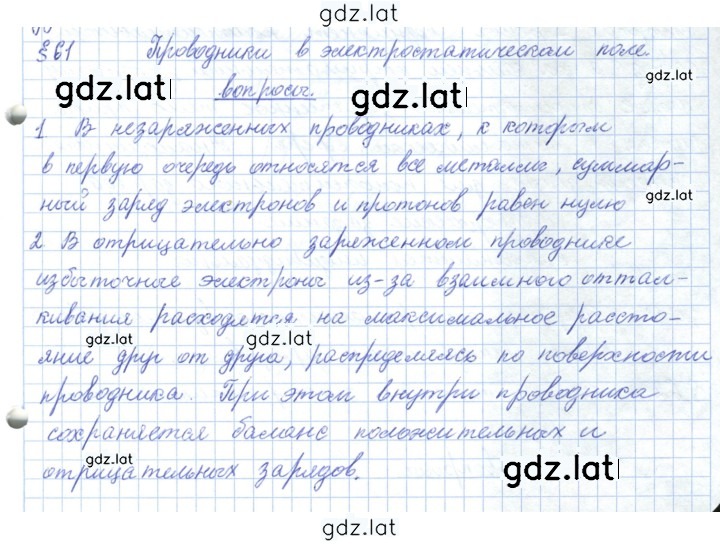 gdz.lat
§61 Проводники в электростатическом поле.
gdz.lat
gdz.lat вопросы. gdz.lat
1 В незаряженных проводниках, к которым
в первую очередь относятся все металлы, суммар-
ный заряд электронов и протонов равен нулю
gdz.lat gdz.lat gdz.lat
2 В отрицательно заряженном проводнике
избыточные электроны из-за взаимного оттал-
кивания расходятся на максимальное рассто-
gdz.lat gdz.lat
яние друг от друга, распределяясь по поверхности
проводника. При этом внутри проводника
сохраняется баланс положительных и
gdz.lat gdz.lat
отрицательных зарядов.
gdz.lat